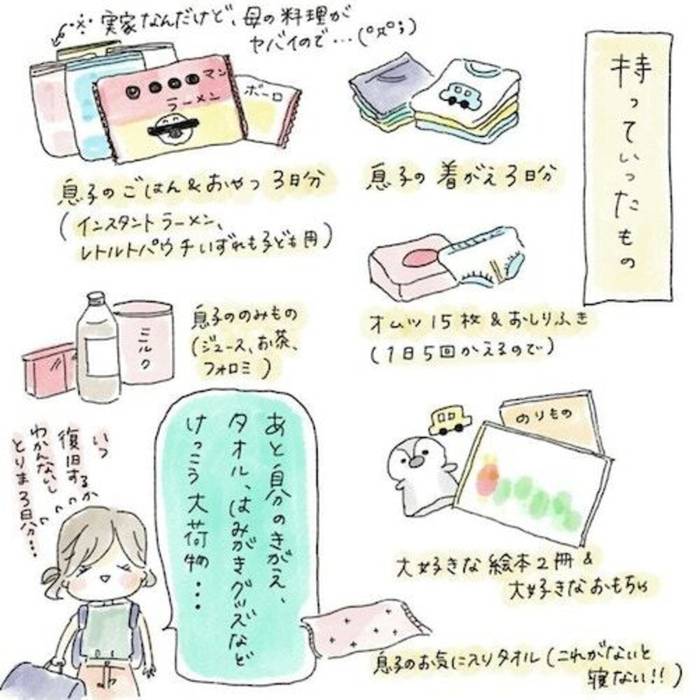 持っていったもの
※実家なんだけど、母の料理が
ヤバイので…(°д°;)
マン
ラーメン
ボーロ
息子のごはん&おやつ3日分
(インスタントラーメン、
レトルトパウチいずれも子ども用)
息子の着がえ3日分
オムツ15枚&おしりふき
(1日5回かえるので)
ミルク
息子ののみもの
(ジュース、お茶、
フォロミ)
のりもの
大好きな絵本2冊&
大好きなおもちゃ
いつ
復旧するか
わかんないし
とりま3日分…
あと自分のきがえ、
タオル、はみがきグッズなど
けっこう大荷物…
息子のお気に入りタオル(これがないと
寝ない!!)